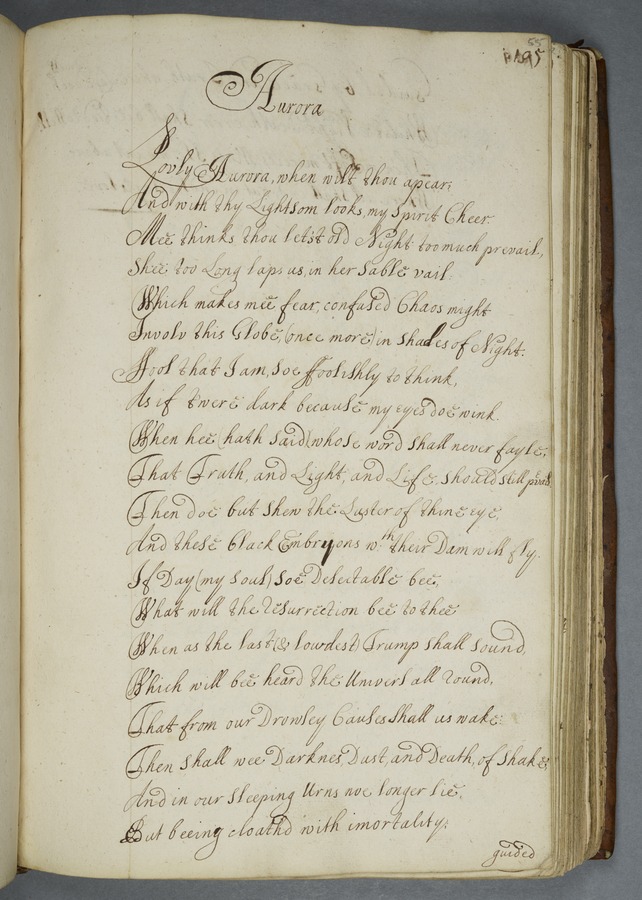 55
195
Aurora
Lovly Aurora, when wilt thou appear;
And with thy Lightsom looks, my Spirit Cheer.
Mee thinks thou letst old Night too much prevail,
Shee too Long laps us, in her sable vail
Which makes mee fear, confused Chaos might
Involv this Globe, (once more) in shades of Night.
Ffool that I am, soe ffoolishly to think,
As if twere dark because my eyes doe wink.
When hee (hath said) whose word shall never fayle,
That Truth, and Light, and Life, should still pvail
Then doe but shew the Luster of thine eye,
And these black Embryons wth their Dam will fly.
If Day (my soul) soe Delectable bee,
What will the resurrection bee to thee
When as the last (& lowdest) Trump shall sound,
Which will bee heard the Univers all round,
That from our Drowsey Causes shall us wake:
Then shall wee Darknes, Dust, and Death, of shake
And in our sleeping Urns noe longer lie,
But beeing cloathd with imortality;
guided